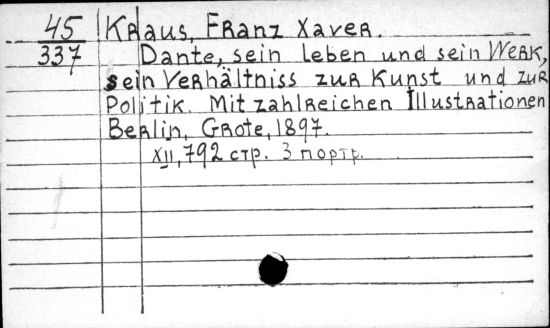 45 Kraus, Franz Xaver.
337 Dante, sein Leben und sein Werk,
sein Verhältniss zur Kunst und zur
Politik. Mit zahlreichen Illustrationen
Berlin, Grote, 1897.
XII, 792 стр. 3 портр.